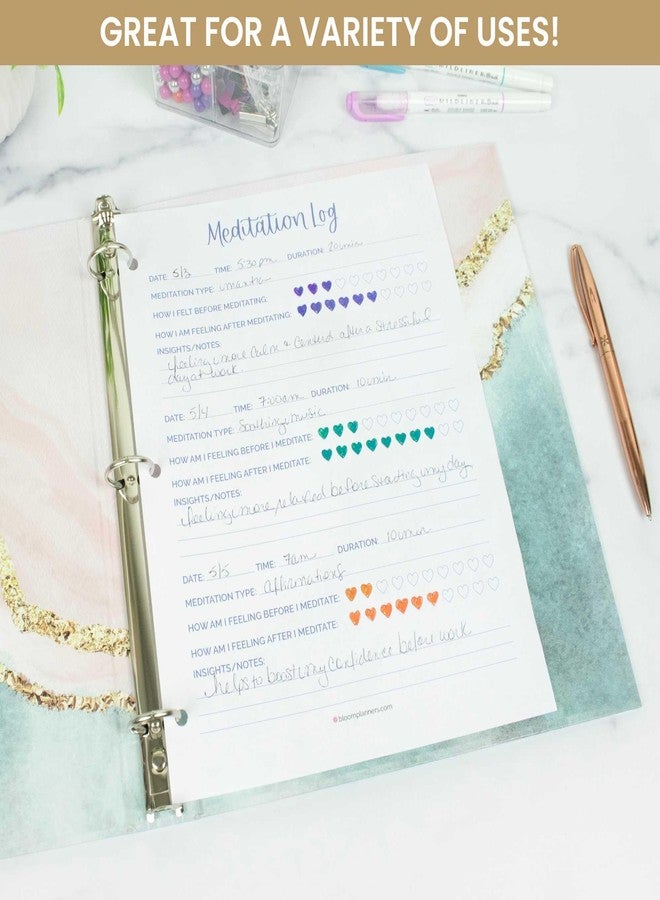 GREAT FOR A VARIETY OF USES!
MILDLINER
MILDLINER
Meditation Log
DATE: 5/3 TIME: 5:30pm DURATION: 20min
MEDITATION TYPE: mantra
HOW I FELT BEFORE MEDITATING:
HOW I AM FEELING AFTER MEDITATING:
INSIGHTS/NOTES:
feeling more calm & centerd after a stressful
day at work.
DATE: 5/4 TIME: 7:00am DURATION: 10min
MEDITATION TYPE: Soothing music
HOW AM I FEELING BEFORE I MEDITATE:
HOW AM I FEELING AFTER I MEDITATE:
INSIGHTS/NOTES:
feeling more relaxed before starting my day
DATE: 5/5 TIME: 7am DURATION: 10min
MEDITATION TYPE: affirmations
HOW AM I FEELING BEFORE I MEDITATE:
HOW AM I FEELING AFTER I MEDITATE:
INSIGHTS/NOTES:
helps to boost my confidence before work
bloomplanners.com